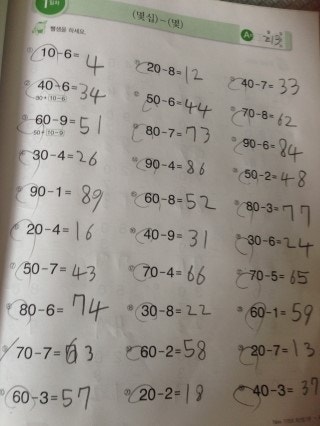 (몇십)-(몇)
뺄셈을 하세요.
10-6= 4
40-6= 34
30+10-6
60-9= 51
50+10-9
30-4= 26
90-1= 89
20-4= 16
50-7= 43
80-6= 74
70-7= 63
60-3= 57
20-8= 12
50-6= 44
80-7= 73
90-4= 86
60-8= 52
40-9= 31
70-4= 66
30-8= 22
60-2= 58
20-2= 18
40-7= 33
70-8= 62
90-6= 84
50-2= 48
80-3= 77
30-6= 24
70-5= 65
60-1= 59
20-7= 13
40-3= 37